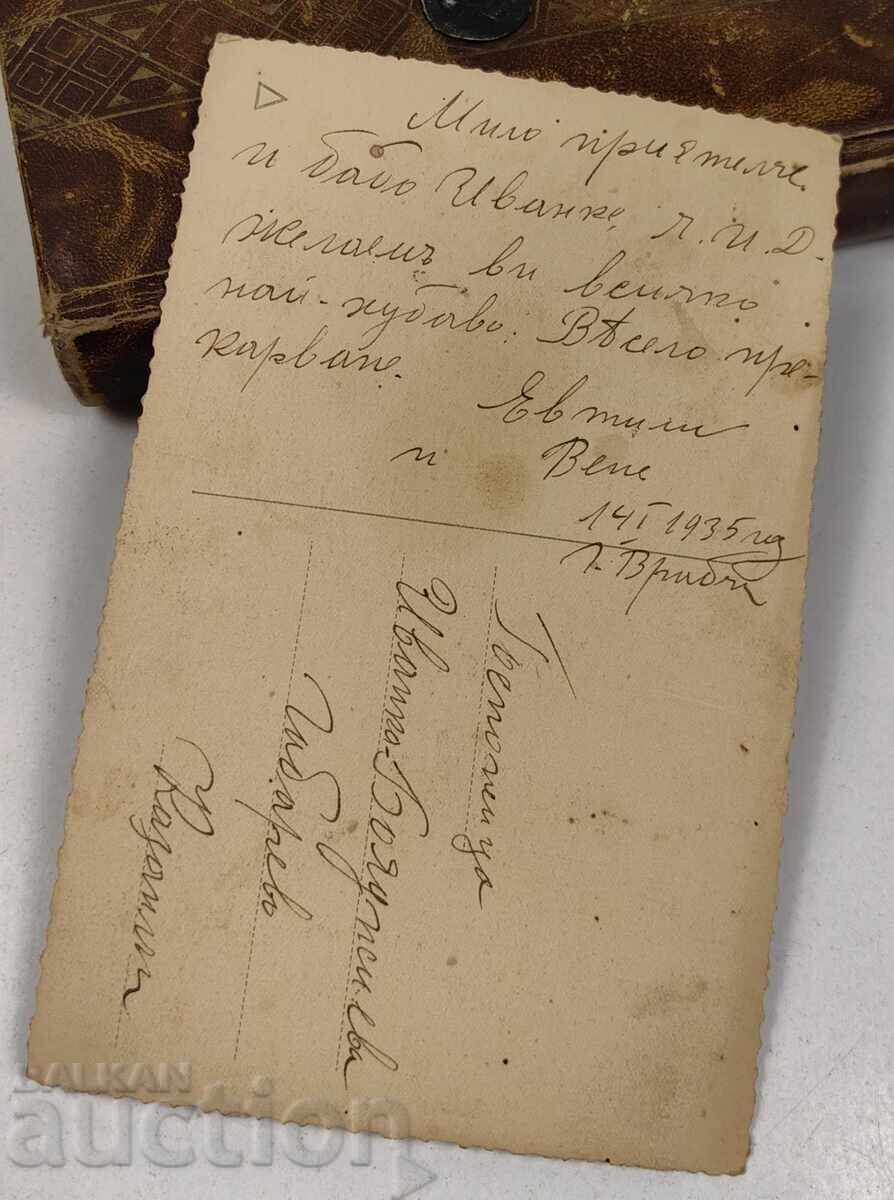 Мило приятелче
и бабо Иванке, Л. И. Д.
желаемъ ви всичко
най-хубаво. Вѣсело пре-
карване.
Евтими
и Вене
14 I 1935 год
Госпожица
Иванка Бояджиева
Габарево
Казанлъ
BALKAN
auction